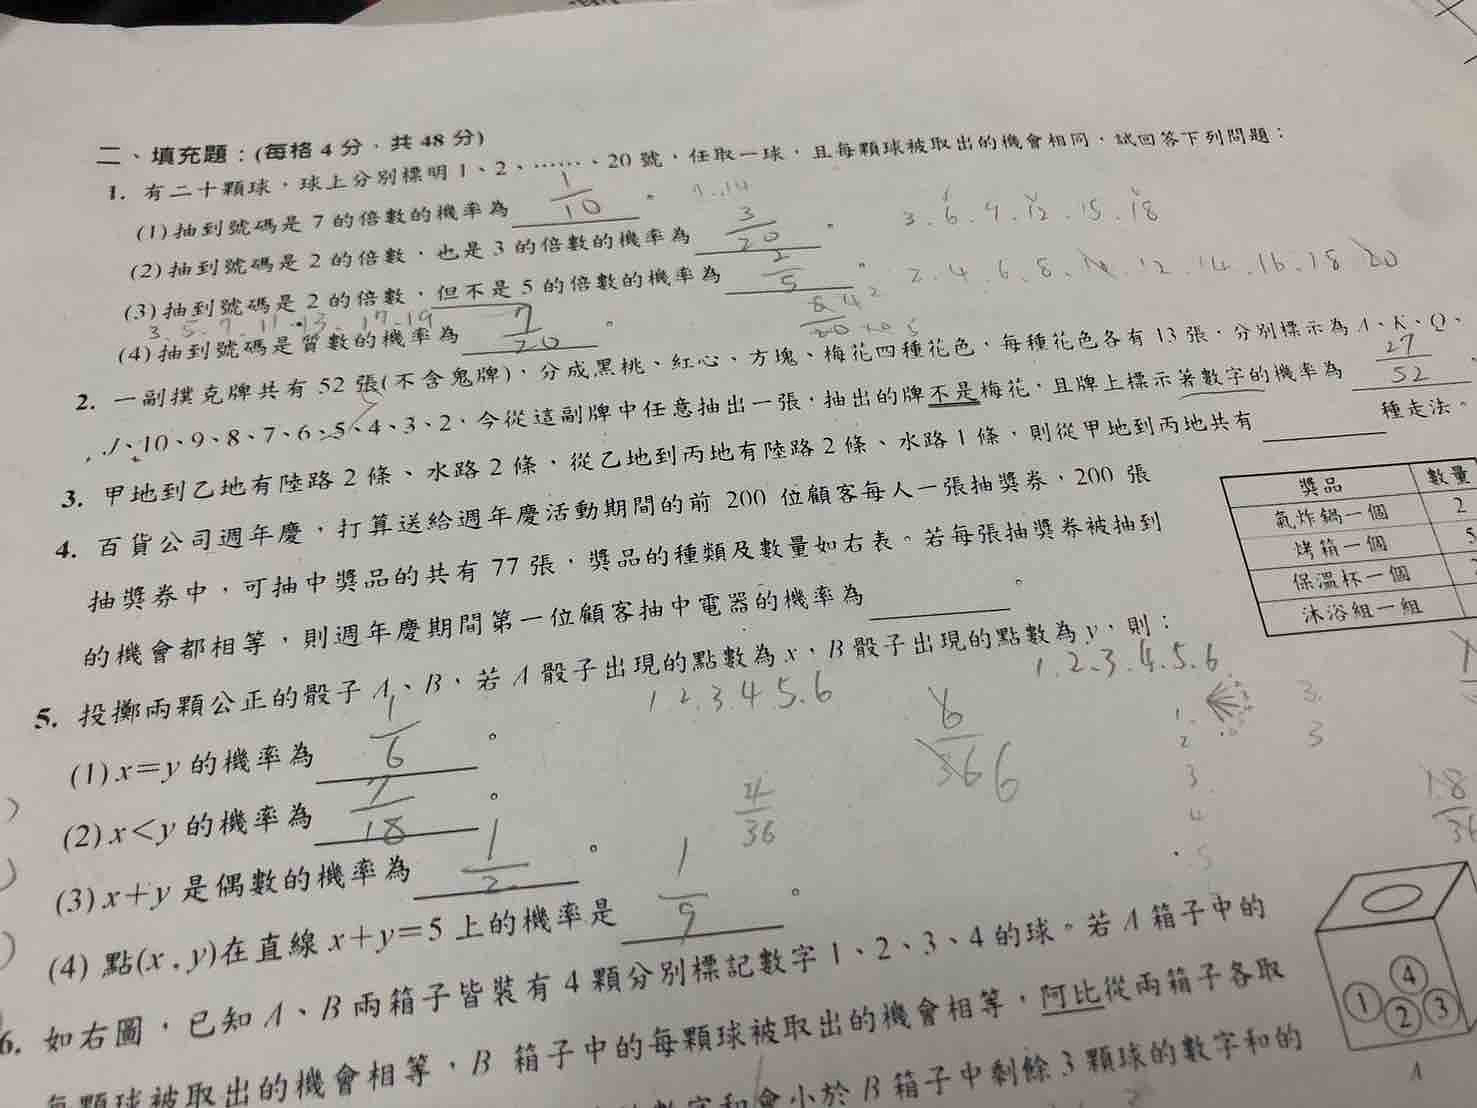 二、填充題：(每格 4 分、共 48 分)
1. 有二十顆球，球上分別標明 1、2、……、20 號，任取一球，且每顆球被取出的機會相同，試回答下列問題：
(1)抽到號碼是 7 的倍數的機率為 1/10 。 7.14
(2)抽到號碼是 2 的倍數，也是 3 的倍數的機率為 3/20 。 3.6.9.12.15.18
(3)抽到號碼是 2 的倍數，但不是 5 的倍數的機率為 2/5 。 2.4.6.8.10.12.14.16.18.20
3.5.7.11.13.17.19
(4)抽到號碼是質數的機率為 7/20 。 8/20
2. 一副撲克牌共有 52 張(不含鬼牌)，分成黑桃、紅心、方塊、梅花四種花色，每種花色各有 13 張，分別標示為 A、K、Q、
J、10、9、8、7、6、5、4、3、2，今從這副牌中任意抽出一張，抽出的牌不是梅花，且牌上標示著數字的機率為 27/52
3. 甲地到乙地有陸路 2 條、水路 2 條，從乙地到丙地有陸路 2 條、水路 1 條，則從甲地到丙地共有 種走法。
4. 百貨公司週年慶，打算送給週年慶活動期間的前 200 位顧客每人一張抽獎券，200 張
抽獎券中，可抽中獎品的共有 77 張，獎品的種類及數量如右表。若每張抽獎券被抽到
的機會都相等，則週年慶期間第一位顧客抽中電器的機率為 。
獎品 數量
氣炸鍋一個 2
烤箱一個 5
保溫杯一個
沐浴組一組
5. 投擲兩顆公正的骰子 A、B，若 A 骰子出現的點數為 x，B 骰子出現的點數為 y，則：
1.2.3.4.5.6 1.2.3.4.5.6
(1) x=y 的機率為 1/6 。 6/36 6
(2) x<y 的機率為 7/18 。 4/36
(3) x+y 是偶數的機率為 1/2 。
(4) 點(x , y)在直線 x+y=5 上的機率是 1/9 。
1. 3.
2 3
3.
4
5
18/36
6. 如右圖，已知 A、B 兩箱子皆裝有 4 顆分別標記數字 1、2、3、4 的球。若 A 箱子中的
每顆球被取出的機會相等，B 箱子中的每顆球被取出的機會相等，阿比從兩箱子各取
數字和會小於 B 箱子中剩餘 3 顆球的數字和的
4
1 2 3
A